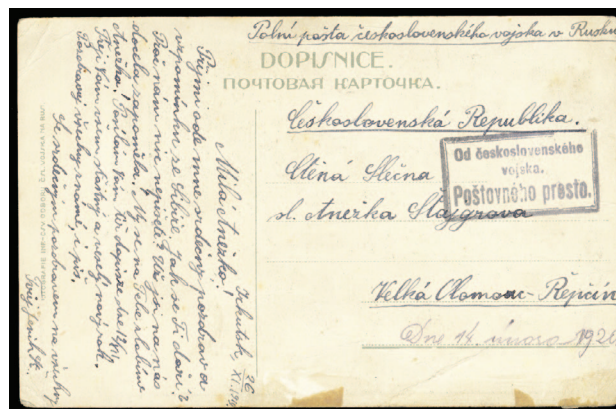 Polní pošta československého vojska v Rusku
DOPISNICE.
ПОЧТОВАЯ КАРТОЧКА.
Československá Republika.
Od československého
vojska.
Poštovného prosto.
Ctěná Slečna
sl. Anežka Štajgrova
Velká Olomouc - Řepčín
Dne 14. února 192
Irkutsk, 26 XI. 19
Milá Anežko!
Přijmi ode mne srdečný pozdrav a
vzpomínku ze Sibiře. Jak se Ti daří?
Proč nám nic nepíšeš? Už jsi na nás
docela zapomněla. My se na Tebe
Anežko. Posílám Vám tu dopisnici
Přeji Vám všem šťastný a veselý nový rok.
Pozdravuj všechny známé, a piš.
Se srdečným pozdravem na všechny
Tvůj